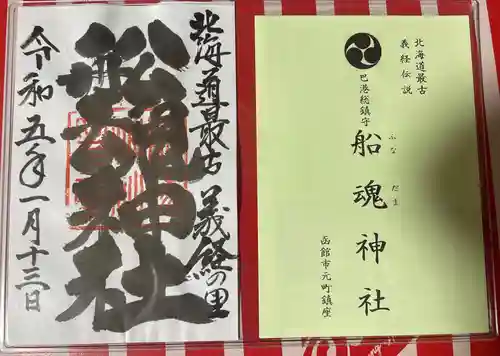 北海道最古 義経の里
船魂神社
令和五年一月十三日
北海道最古
義経伝説
巴港総鎮守
船魂神社
ふなだま
函館市元町鎮座